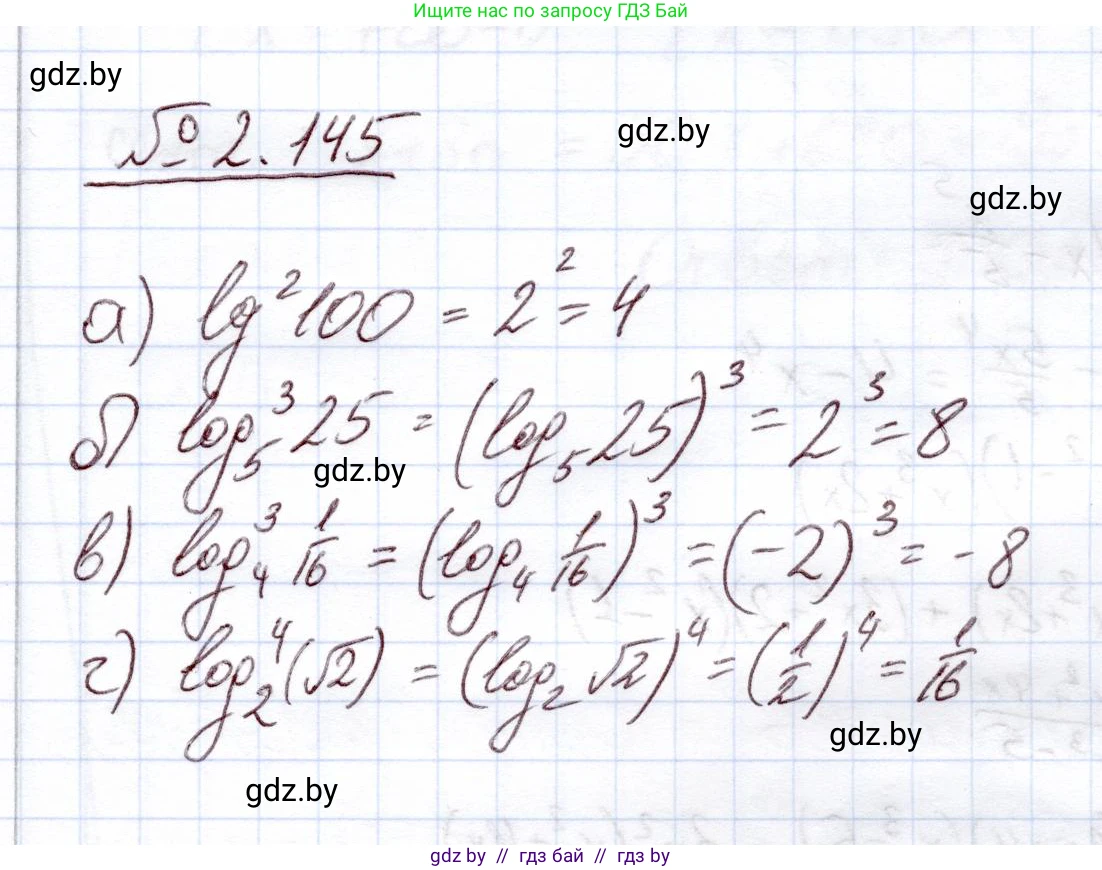 Ищите нас по запросу ГДЗ Бай
gdz.by
№ 2.145
gdz.by
gdz.by
а) lg² 100 = 2² = 4
б) log₅³ 25 = (log₅ 25)³ = 2³ = 8
gdz.by
в) log₄³ 1/16 = (log₄ 1/16)³ = (-2)³ = -8
г) log₂⁴ (√2) = (log₂ √2)⁴ = (1/2)⁴ = 1/16
gdz.by
gdz.by
gdz.by // гдз бай // гдз by